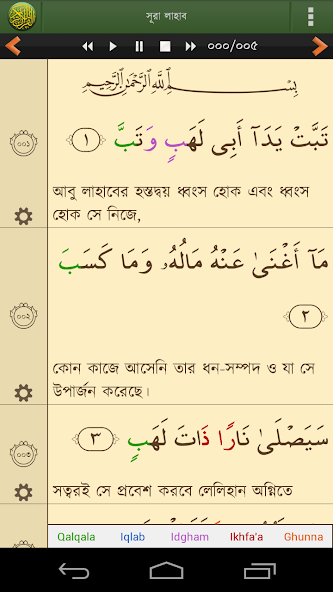 সূরা লাহাব
০০০/০০৫
بِسْمِ اللَّهِ الرَّحْمَٰنِ الرَّحِيمِ
تَبَّتْ يَدَآ أَبِى لَهَبٍ وَتَبَّ ١
০০১
আবু লাহাবের হস্তদ্বয় ধ্বংস হোক এবং ধ্বংস
হোক সে নিজে,
مَآ أَغْنَىٰ عَنْهُ مَالُهُۥ وَمَا كَسَبَ
٢
০০২
কোন কাজে আসেনি তার ধন-সম্পদ ও যা সে
উপার্জন করেছে।
سَيَصْلَىٰ نَارًا ذَاتَ لَهَبٍ ٣
০০৩
সত্বরই সে প্রবেশ করবে লেলিহান অগ্নিতে
Qalqala Iqlab Idgham Ikhfa'a Ghunna